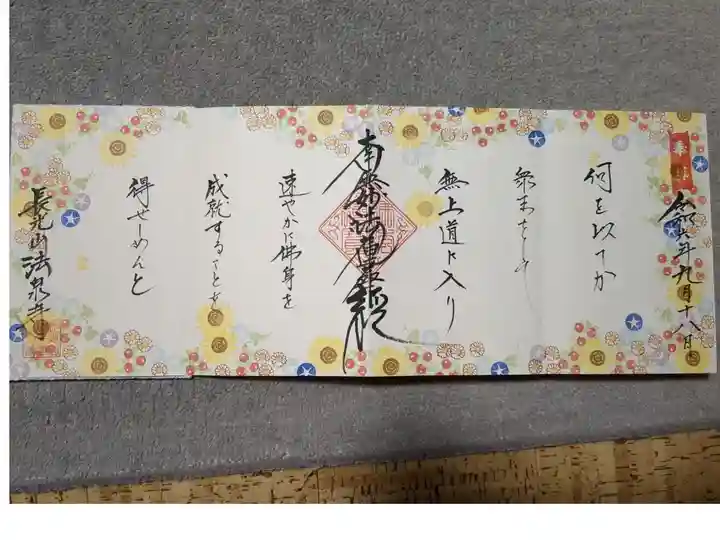 奉拝
令和六年九月十八日
何を以てか
衆生をして
無上道に入り
南無妙法蓮華経
速やかに佛身を
成就することを
得せしめんと
長光山法泉寺